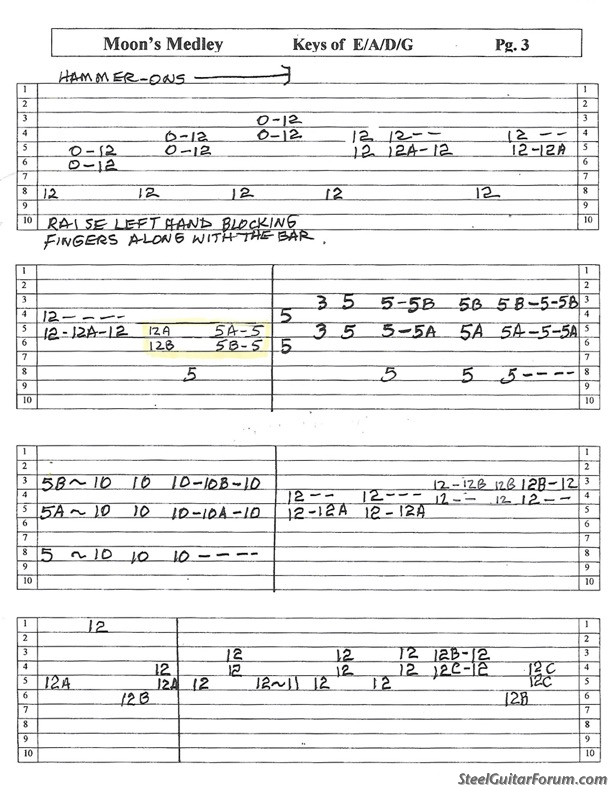 Moon's Medley Keys of E/A/D/G Pg. 3
HAMMER-ONS
1 1
2 2
3 0-12 3
4 0-12 0-12 12 12-- 12 -- 4
5 0-12 0-12 12 12A-12 12-12A 5
6 0-12 6
7 7
8 12 12 12 12 12 8
9 9
10 RAISE LEFT HAND BLOCKING 10
FINGERS ALONG WITH THE BAR.
1 1
2 2
3 3 5 5-5B 5B 5B-5-5B 3
4 12---- 5 4
5 12-12A-12 12A 5A-5 3 5 5-5A 5A 5A-5-5A 5
6 12B 5B-5 5 6
7 7
8 5 5 5 5---- 8
9 9
10 10
1 1
2 2
3 5B~10 10 10-10B-10 12-12B 12B 12B-12 3
4 12-- 12--- 12-- 12 12-- 4
5 5A~10 10 10-10A-10 12-12A 12-12A 5
6 6
7 7
8 5 ~10 10 10---- 8
9 9
10 10
1 12 1
2 2
3 12 12 12 12B-12 3
4 12 12 12 12 12C-12 12C 4
5 12A 12A 12 12~11 12 12 12C 5
6 12B 12B 6
7 7
8 8
9 9
10 10
SteelGuitarForum.com